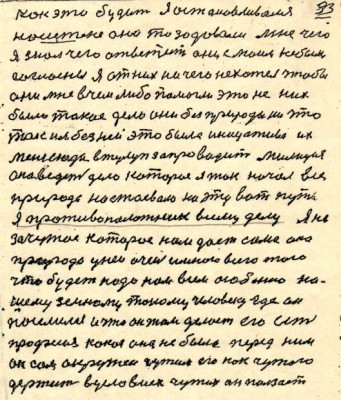 93
как это будит Я остановливался
но
они то зодовали мне чего
Я знал чего ответит они с моим небыли
согласны Я от них начего нехотел чтобы
они мне в чем либо помогли это не них
было такое дело они без природы ни что
так и без ней это была инициатива их
меня сюды в тулуп запроводит милиция
она ведет дело которое я так начал все
природа настоевала на эту вот путь
Я противоположник всему делу Я не
за чужое которое нам дает сама она
природа у ней очен много всего того
что будет надо нам всем особенно на-
шему земному такому человеку где он
поселился и что он там делает его ест
професия какая она не была перед ним
он сам окружен чужим его как чужого
держит в условиех чужих он ползает